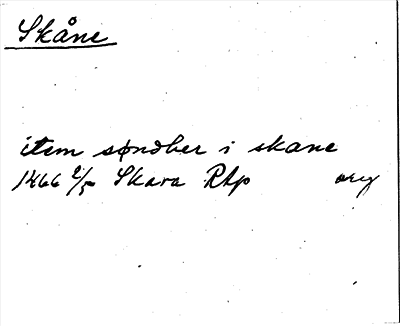 Skåne
item søndher i skane
1466 2/5 Skara Rap org